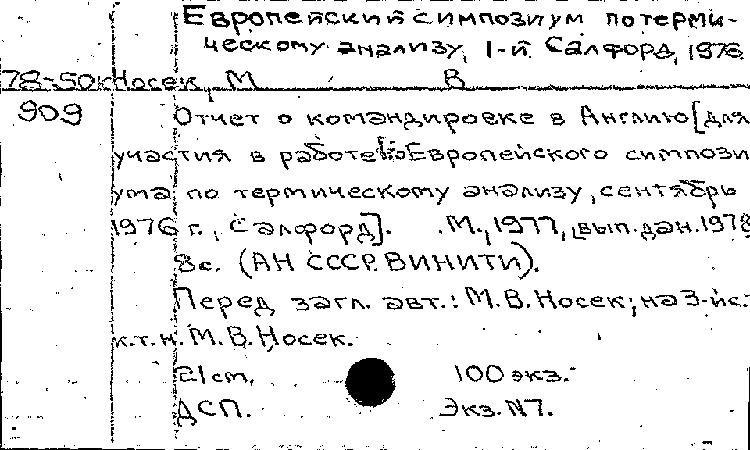 Европейский симпозиум по терми-
ческому анализу, 1-й. Салфорд, 1976.
78-50к Носек, М В
909 Отчет о командировке в Англию [для
участия в работе I-го Европейского симпози
ума по термическому анализу, сентябрь
1976 г., Салфорд]. М., 1977, [вып. дан. 1978
8с. (АН СССР. ВИНИТИ).
Перед загл. авт.: М. В. Носек; на 3-й с.:
к.т.н. М. В. Носек.
21 cm. 100 экз.
ДСП. Экз. N7.